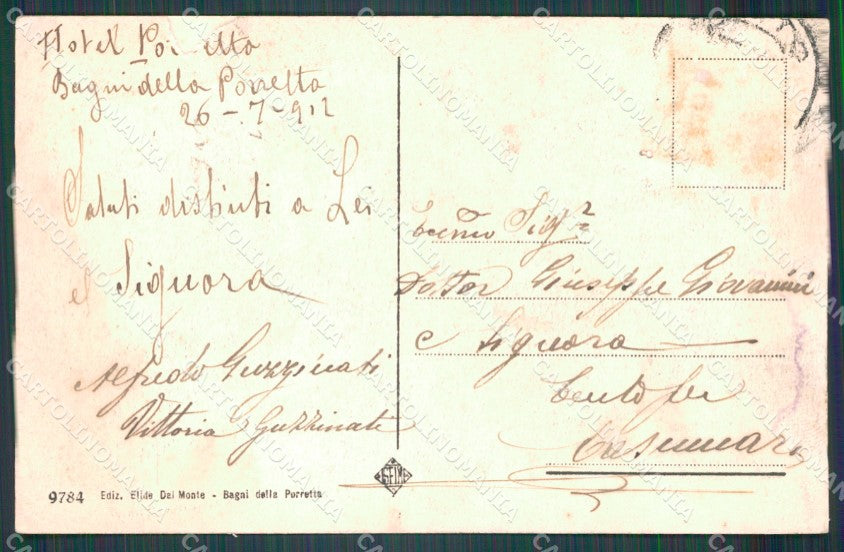 Hotel Porretta
Bagni della Porretta
26-7-912
Saluti distinti a Lei
e Signora
Alfredo Guzzinati
Vittoria Guzzinati
Sigr
Dottor Giuseppe Giovannini
e Signora
Cento per
Casumaro
SFIM
9784 Ediz. Elide Dal Monte - Bagni della Porretta
CARTOLINOMANIA